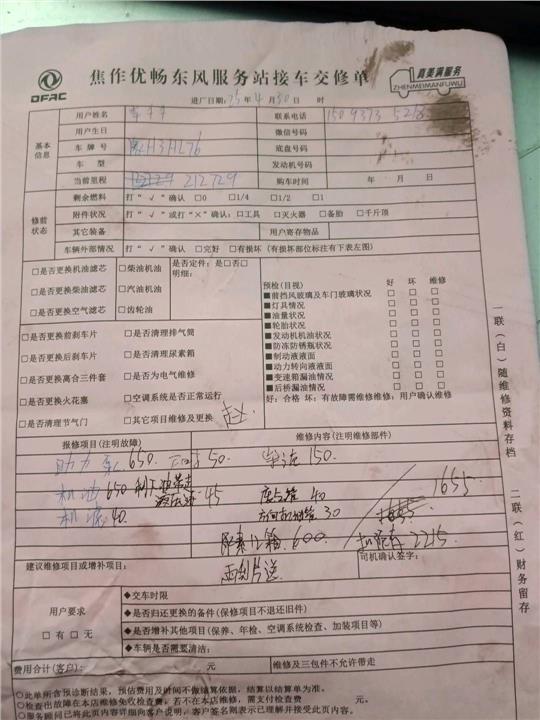 DFAC
焦作优畅东风服务站接车交修单
真美满服务
ZHENMEIMANFUWU
进厂日期: 25年 4月30日 时
基本信息
用户姓名
联系电话
用户生日
微信号码
车牌号 H3HL76
底盘号码
车型
发动机号码
当前里程 212729
购车时间 年 月 日
修前状态
剩余燃料 打“√”确认 □0 □1/4 □1/2 □1
附件状况 打“√”或打“×”确认:□工具 □灭火器 □备胎 □千斤顶
其它装备
用户寄存物品
车辆外部情况 打“√”确认 □完好 □有损坏(有损坏部位标注有下表左图)
□是否更换机油滤芯 □柴油机油 是否定件:是□否□
明细:
□是否更换柴油滤芯 □汽油机油
□是否更换空气滤芯 □齿轮油
预检(目视) 好 坏 维修
■前挡风玻璃及车门玻璃状况 □ □ □
■灯具情况 □ □ □
■油量状况 □ □ □
■轮胎状况 □ □ □
■发动机机油状况 □ □ □
■防冻防锈瓶状况 □ □ □
■制动液液面 □ □ □
■动力转向液液面 □ □ □
■变速箱漏油情况 □ □ □
■后桥漏油情况 □ □ □
好:合格 坏:有故障需维修维修:用户确认维修
□是否更换前刹车片 □是否清理排气筒
□是否更换后刹车片 □是否清理尿素箱
□是否更换离合三件套 □是否为电气维修
□是否更换火花塞 □空调系统是否正常运行
□是否清理节气门 □其它项目维修及更换
报修项目(注明故障)
维修内容(注明维修部件)
助力泵 650 50 150
机油 650 45 40 1655
机滤 40 30
尿素 箱 600 2215
建议维修项目或增补项目:
司机确认签字:
用户要求
□有 □无
◆交车时限
◆是否归还更换的备件(保修项目不退还旧件)
◆是否增补其他项目(保养、年检、空调系统检查、加装项目等)
◆车辆是否需清洁:
费用合计(客户): 元
维修及三包件不允许带走
○此单所含预诊断结果,预估费用及时间不做结算依据,结算以结算单为准。
○检查出故障在本店维修免收检查费;若不在本店维修,需支付检查费 元。
○服务顾问已将此页内容详细向客户说明,客户签名则表示已理解并接受此页内容。
一联(白)随维修资料存档
二联(红)财务留存